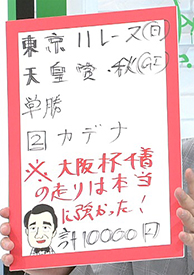 東京11レース(日)
天皇賞・秋(GI)
単勝
2 カデナ
※大阪杯4着
の走りは本当
に強かった!
計10000円